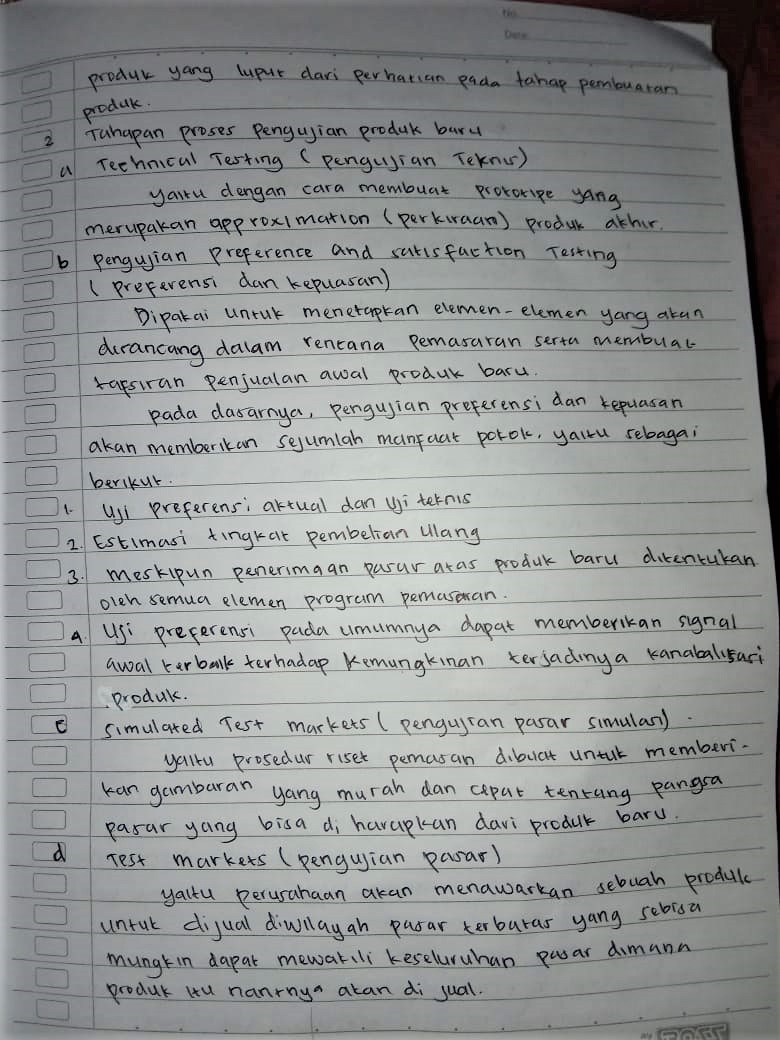 No
Date
produk yang luput dari perhatian pada tahap pembuatan
produk.
2 Tahapan proses pengujian produk baru
a Technical Testing ( pengujian Teknis)
yaitu dengan cara membuat prototipe yang
merupakan approximation (perkiraan) produk akhir.
b pengujian preference and satisfaction Testing
( preferensi dan kepuasan)
Dipakai untuk menetapkan elemen-elemen yang akan
dirancang dalam rencana pemasaran serta membuat
tafsiran penjualan awal produk baru.
pada dasarnya, pengujian preferensi dan kepuasan
akan memberikan sejumlah manfaat pokok, yaitu sebagai
berikut.
1. Uji preferensi aktual dan uji teknis
2. Estimasi tingkat pembelian ulang
3. meskipun penerimaan pasar atas produk baru ditentukan
oleh semua elemen program pemasaran.
4. Uji preferensi pada umumnya dapat memberikan signal
awal terbaik terhadap kemungkinan terjadinya kanabalisasi
produk.
c simulated Test markets ( pengujian pasar simulasi) .
yaitu prosedur riset pemasan dibuat untuk memberi-
kan gambaran yang murah dan cepat tentang pangsa
pasar yang bisa di harapkan dari produk baru.
d Test markets (pengujian pasar)
yaitu perusahaan akan menawarkan sebuah produk
untuk dijual diwilayah pasar terbatas yang sebisa
mungkin dapat mewakili keseluruhan pasar dimana
produk itu nantnya akan di jual.